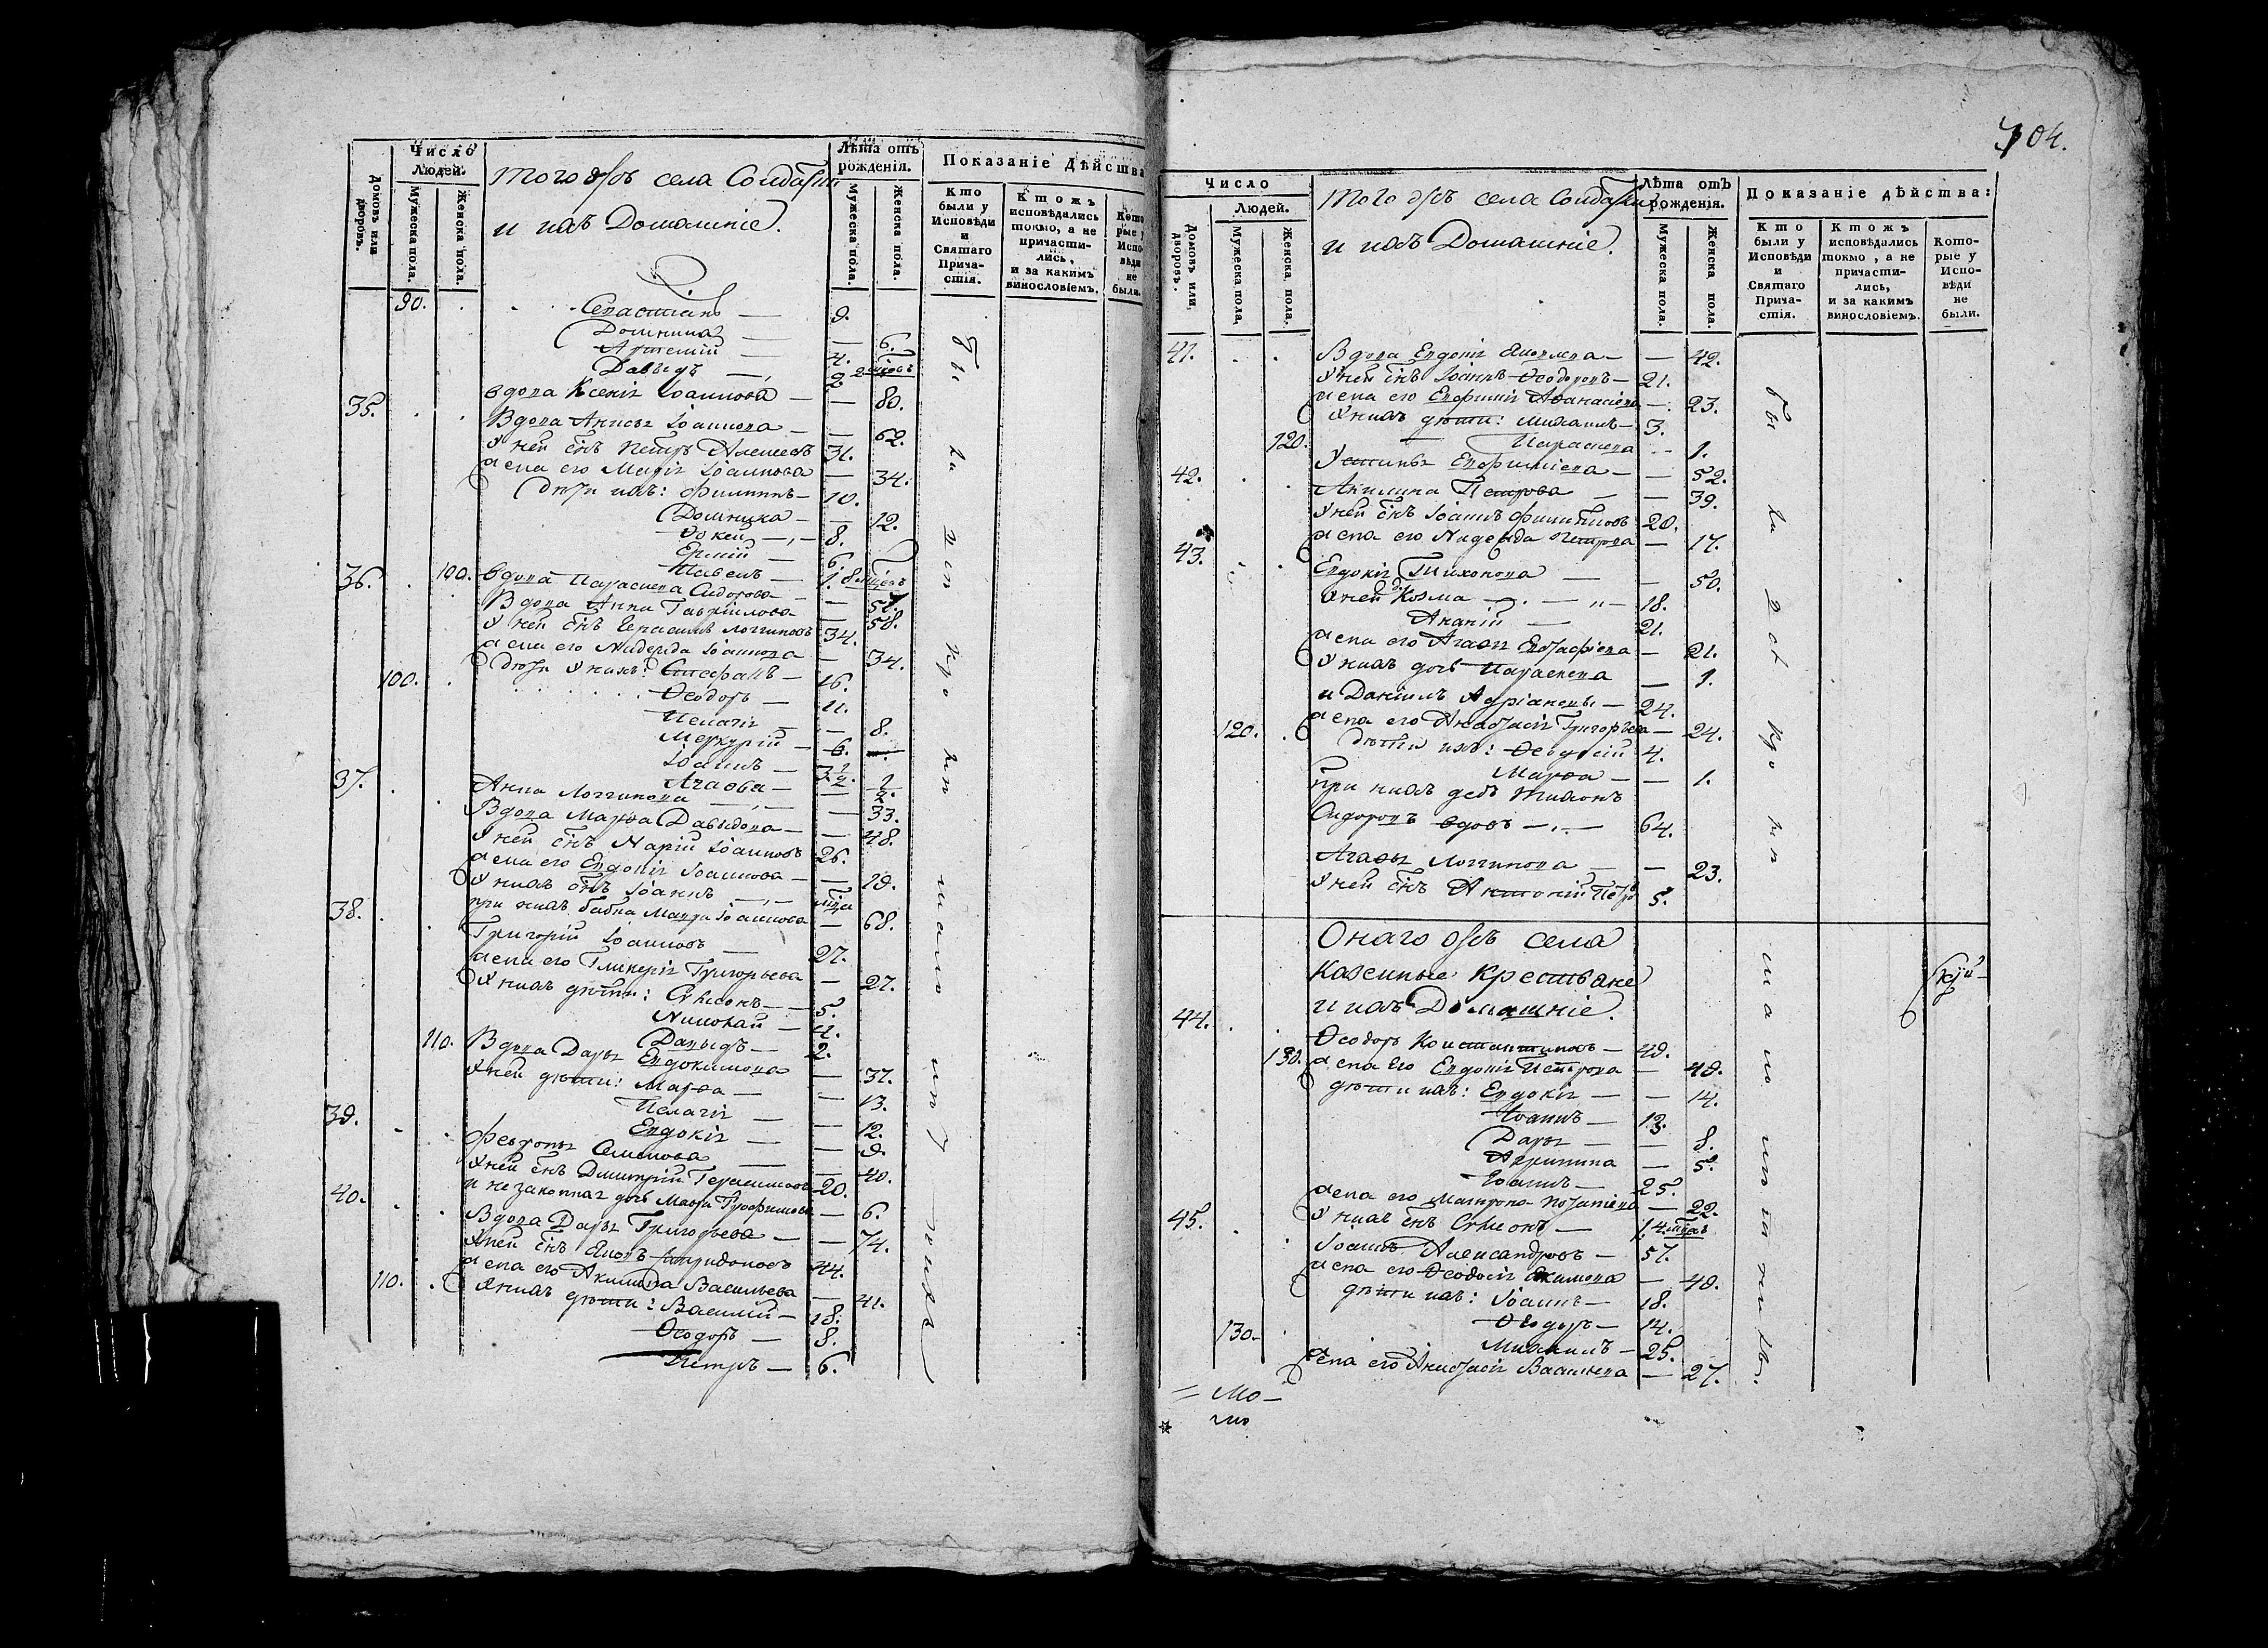 Число Людей.
Домовъ или дворовъ.
Мужеска пола.
Женска пола.
Того жъ села Солдатки
и ихъ Домашніе.
Лѣта отъ рожденія.
Мужеска пола.
Женска пола.
Показаніе Дѣйства
Кто были у Исповѣди и Святаго Прича-стія.
Ктожъ исповѣдались токмо, а не причасти-лись, и за какимъ винословіемъ.
Кото рые у Испо вѣди не были.
90. Севастіанъ — 9.
Домника — — 6.
Артемій — 4.
Давыдъ — 2
35. вдова Ксенія Іоаннова — — 80.
Вдова Анисья Іоаннова — — 62.
У ней сынъ Петръ Алексеевъ 31.
жена его Марія Іоаннова — 34.
дѣти ихъ: Филиппъ — 10.
Домника — — 12.
8.
Ермій — 6.
Павелъ — 1.
36. 100. вдова Параскева Сидорова — —
Вдова Анна Гавріилова — 58.
У ней сынъ Герасимъ Логгиновъ 34.
жена его Надежда Іоаннова — 34.
100. дѣти у нихъ: Стефанъ — 16.
Ѳеодоръ — 11.
Пелагія — — 8.
Меркурій — 6.
Іоаннъ — 3 1/2.
Агаѳія — — 1/2.
37. Анна Логгинова — — 33.
Вдова Марѳа Давыдова — — 48.
У ней сынъ Іоанновъ 26.
жена его Евдокія Іоаннова — — 19.
У нихъ сынъ Іоаннъ —
при нихъ бабка Мавра Іоаннова — 68.
38. Григорій Іоанновъ — 27.
жена его Гликерія Григорьева — 27.
У нихъ дѣти: Сѵмеонъ — 5.
Николай — 4.
Давыдъ — 2.
110. Вдова Дарья Евдокимова — 37.
У ней дѣти: Марѳа — — 13.
Пелагія — — 12.
Евдокія — — 9.
39. Февронья Семенова — — 40.
У ней сынъ Дмитрій Герасимовъ 20.
и незаконная дочь Мавра Трофимова — 6.
40. Вдова Дарья Григорьева — — 74.
У ней сынъ Яковъ Спиридоновъ 44.
жена его Акилина Васильева — 41.
110. У нихъ дѣти: Василій — 18.
Ѳеодоръ — 8.
Петръ — 6.
704.
Число Людей.
Домовъ или дворовъ.
Мужеска пола,
Женска пола.
Того жъ села Солдатки
и ихъ Домашніе.
Лѣта отъ рожденія.
Мужеска пола.
Женска пола.
Показаніе дѣйства:
Кто были у Исповѣди и Святаго Прича-стія.
Ктожъ исповѣдались токмо, а не причасти-лись, и за какимъ винословіемъ.
Кото-рые у Испо-вѣди не были.
41. Вдова Евдокія Яковлева — — 42.
У ней сынъ Іоаннъ Ѳеодоровъ — 21.
жена его Евфимія Аѳанасіева — 23.
У нихъ дѣти: Михаилъ — 3.
120. Параскева — 1.
42. Устинья Евфиміева — — 52.
Акилина Петрова — — 39.
У ней сынъ Іоаннъ Филипповъ 20.
жена его Надежда Петрова — 17.
43. Евдокія Тихонова — — 50.
У ней Козма — 18.
Ананій — 21.
жена его Агаѳія Евстафіева — 21.
У нихъ дочь Параскева — 1.
и Даніилъ Адріановъ — 24.
120. жена его Анастасія Григорьева — 24.
дѣти ихъ: Ѳеодосій 4.
Марѳа — — 1.
при нихъ дедъ Тихонъ
Сидоровъ вдовъ — 64.
Агаѳья Логгинова — — 23.
У ней сынъ Антоній Петровъ 5.
Онаго жъ села
Казенные крестьяне
и ихъ Домашніе.
44. Ѳеодоръ Константиновъ — 49.
130. жена его Евдокія Петрова — 49.
дѣти ихъ: Евдокія — — 14.
Іоаннъ — 13.
Дарья — — 8.
Акилина — 5.
Іоаннъ — 25.
жена его Матрона — 22.
У нихъ сынъ Сѵмеонъ —
45. Іоаннъ Александровъ — 57.
жена его Ѳеодосія Якимова — 49.
дѣти ихъ: Іоаннъ — 18.
130. Ѳеодоръ — 14.
Михаилъ — 25.
жена его Анастасія Васильева — 27.